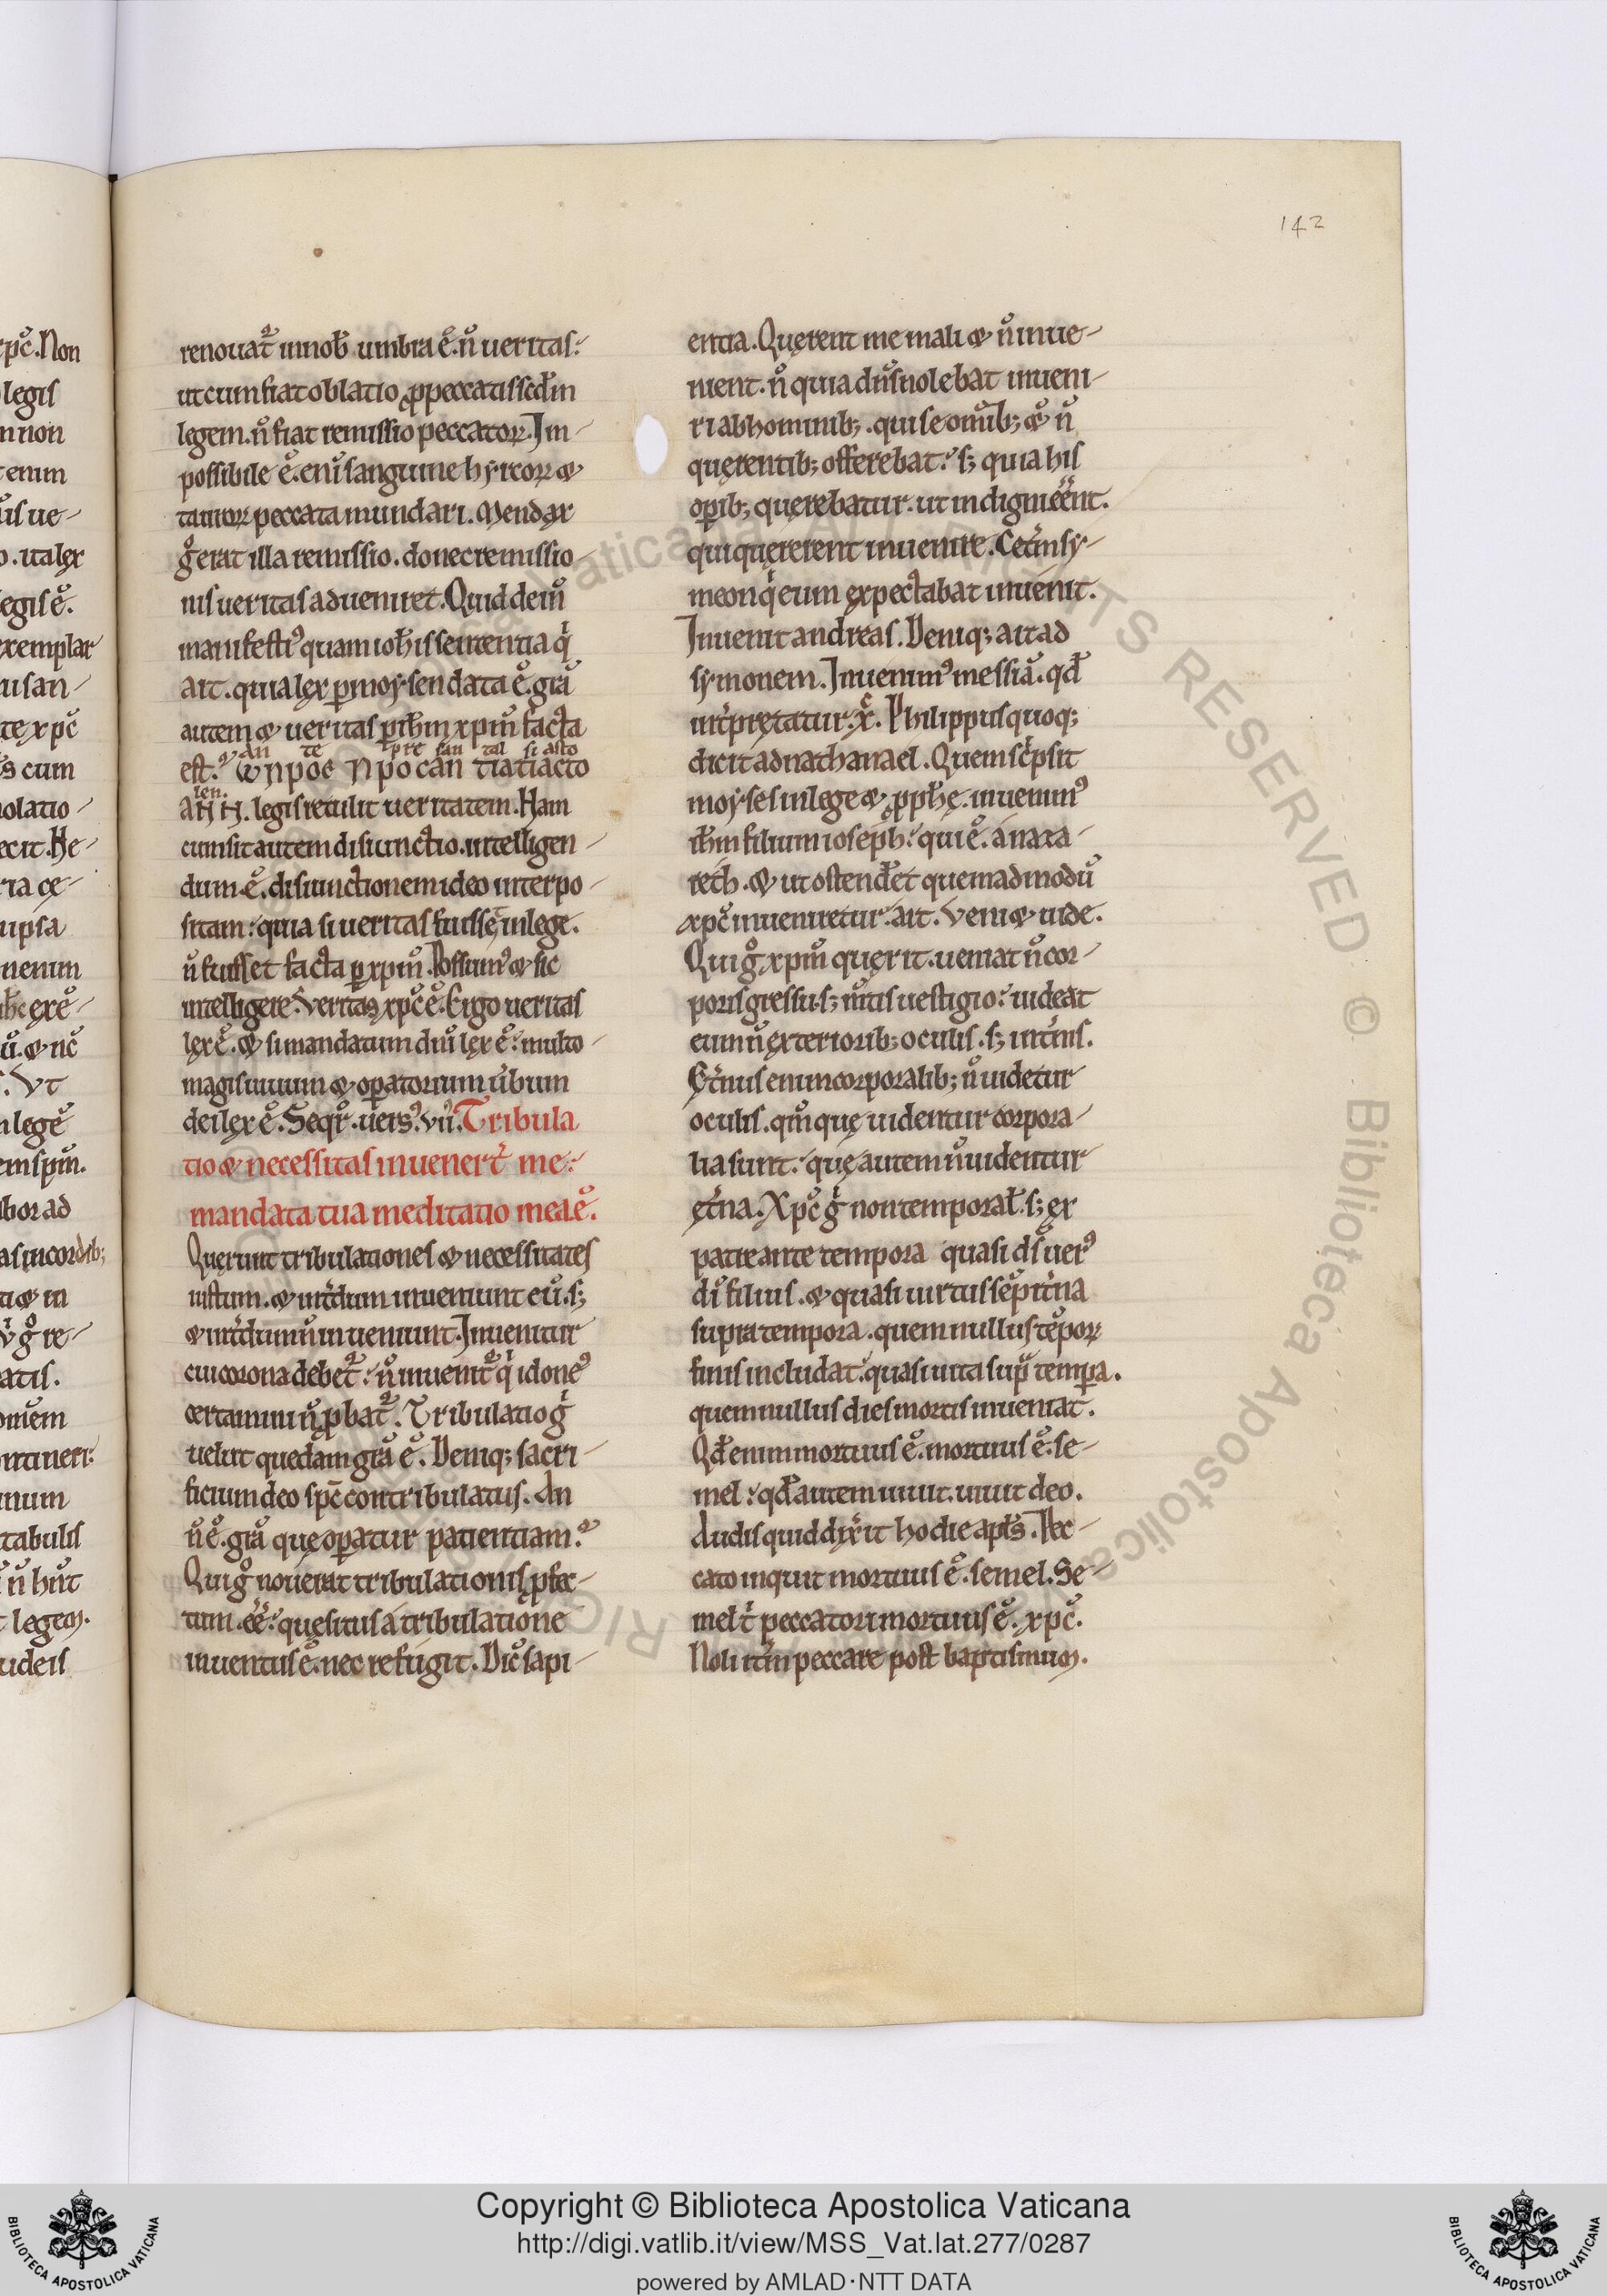 142
renouat᷑ innob̄ umbra ē. ñ ueritas:
ut cum fiat oblatio ꝓ peccatis scd̄m
legem. ñ fiat remissio peccatoꝝ. Im-
possibile ē. enī sanguine hyrcoꝝ &
tauroꝝ peccata mundari. Mendax
g̊ erat illa remissio. donec remissio-
nis ueritas adueniret. Quid deniq
manifesti᷒ quam ioh̄is sententia qͥ
ait. quia lex ꝑ moysen data ē. gr̄a
autem & ueritas ꝑ ih̄m xpm̄ facta
est.
legis retulit ueritatem. Nam
cum sit autem disiunctio. intelligen-
dum ē. disiunctionem ideo interpo-
sitam: quia si ueritas fuisset in lege.
ñ fuisset facta ꝑ xpm̄. Possum᷒ & sic
intelligere. Veritas xpc̄ ē. Ergo ueritas
lex ē. & si mandatum diuī lex ē: multo
magis uiuum & oꝑatorium ūbum
dei lex ē. Seqr̄. uers᷒. vii᷒. Tribula
tio & necessitas inuenert̄ me:
mandata tua meditatio mea ē.
Querunt tribulationes & necessitates
iustum. & int̄dum inueniunt eū. s;
& int̄dum ñ inueniunt. Inuenitur
cui corona debet᷑: ñ inuenit᷑ qͥ idone᷒
certamini ñ ꝓbat᷑. Tribulatio gͥ
uelut quedam gr̄a ē. Deniq; sacri-
ficium deo spc̄ contribulatus. An
ñ ē. gr̄a quę oꝑatur patientiam?
Qui g̊ nouerat tribulationis ꝓfec-
tum. ēē: quesitus a tribulatione
inuentus ē. nec refugit. Dic̄ sapi-
entia. Quęrent me mali & ñ inue-
nient. ñ quia dn̄s nolebat inueni-
ri ab hominib;. qui se om̄ib; & ñ
quęrentib; offerebat: s; quia his
oꝑib; quęrebatur. ut indigni ēēnt.
qui quęrerent inuenire. Cet̄m sy-
meon qͥ eum expectabat inuenit.
Inuenit andreas. Deniq; ait ad
symonem. Inuenim᷒ messiā. qd̄
int̄pretatur. x̄. Philippus quoq;
dicit ad nathanael. Quem scͥpsit
moyses in lege & ꝓph̄ę. inuenim᷒
ih̄m filium ioseph: qui ē. a naza-
reth. & ut ostend̄et quemadmodū
xpc̄ inueniretur. ait. Veni & uide.
Qui g̊ xpm̄ quęrit. ueniat ñ cor-
poris gressu. s; m̄tis uestigio: uideat
eum ñ exteriorib; oculis. s; int̄nis.
Ęt̄nus enim corporalib; ñ uidetur
oculis. qm̄ quę uidentur corpora-
lia sunt: quę autem ñ uidentur
ęt̄na. Xpc̄ gͥ non temporal̄. s; ex
patre ante tempora quasi ds̄ uer᷒
dī filius. & quasi uirtus sēpit̄na
supra tempora. quem nullus tēpoꝝ
finis includat: quasi uita supͣ temꝑa.
quem nullus dies mortis inueniat.
Qd̄ enim mortuus ē. mortuus ē. se-
mel: qd̄ autem uiuit. uiuit deo.
Audis quid dix̄it hodie apl̄s. Pec-
cato inquit mortuus ē. semel. Se-
mel t̄ peccatori mortuus ē. xpc̄.
Noli it̄m peccare post baptismum.
Copyright © Biblioteca Apostolica Vaticana
http://digi.vatlib.it/view/MSS_Vat.lat.277/0287
powered by AMLAD·NTT DATA